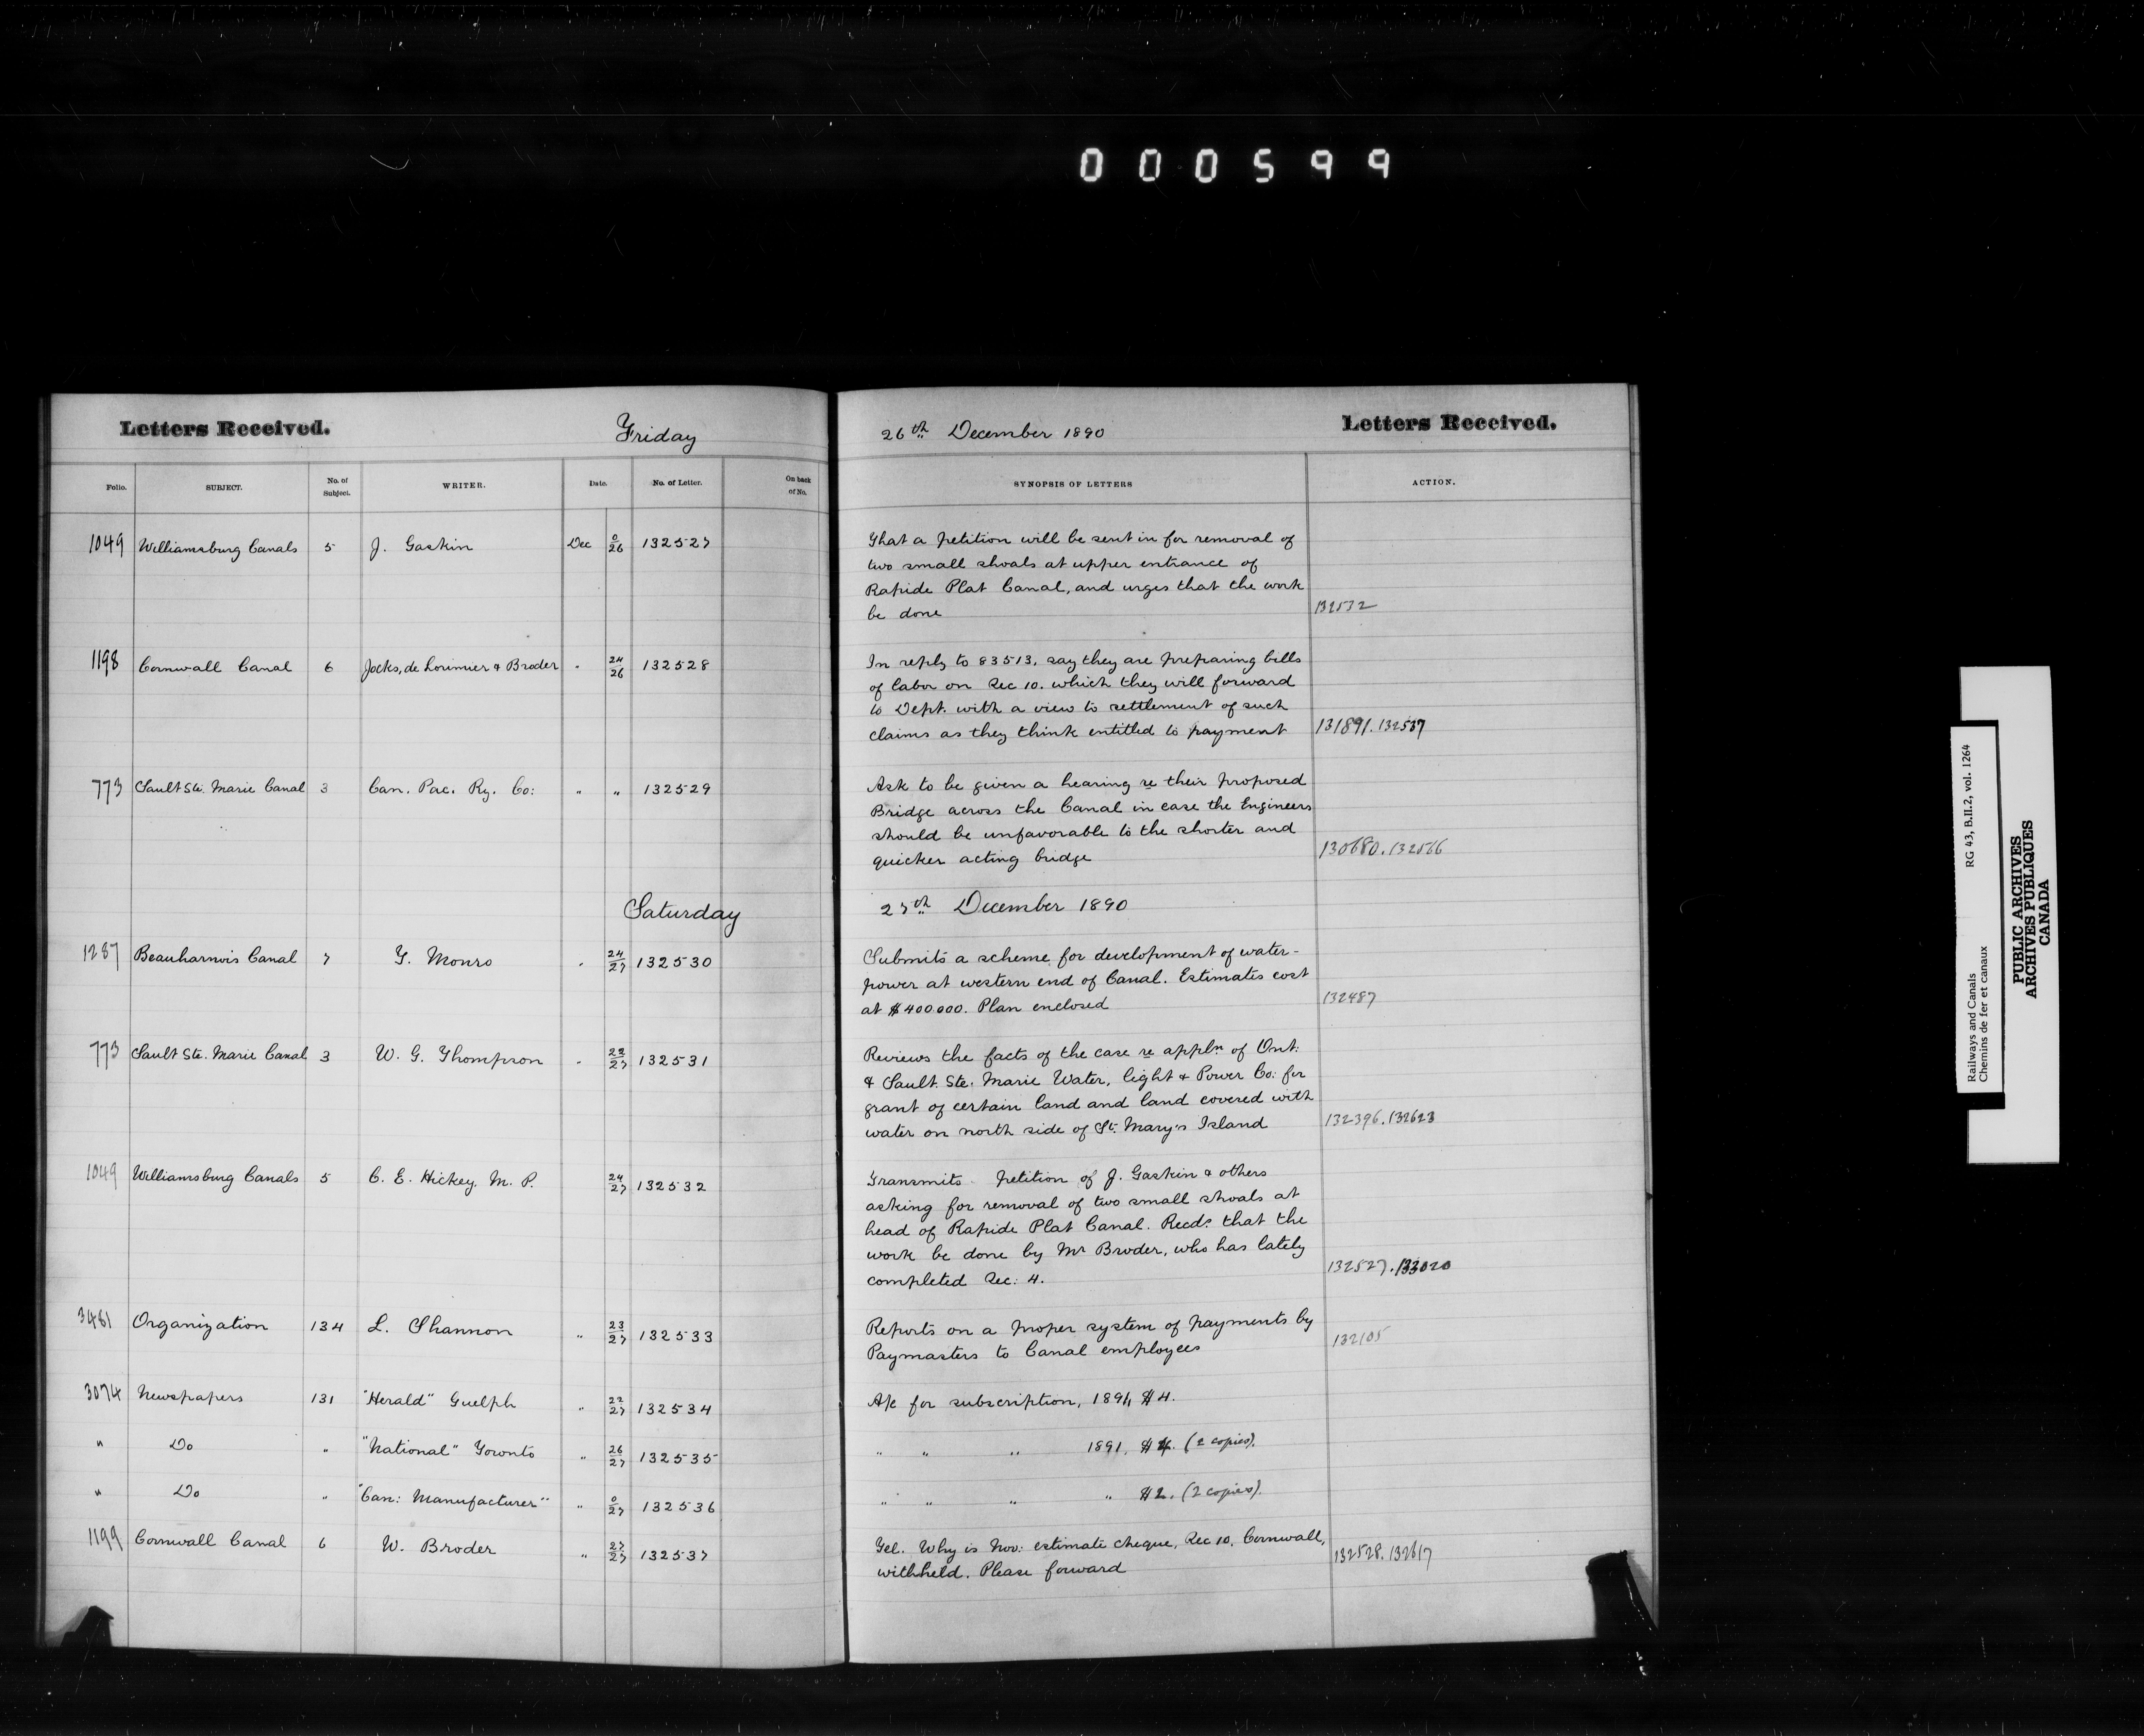 000599
Letters Received.
Friday
26th December 1890
Letters Received.
Folio. SUBJECT. No. of Subject. WRITER. Date. No. of Letter. On back of No. SYNOPSIS OF LETTERS ACTION.
1049 Williamsburg Canals 5 J. Gaskin Dec 0/26 132527
That a petition will be sent in for removal of
two small shoals at upper entrance of
Rapide Plat Canal, and urges that the work
be done 132532
1198 Cornwall Canal 6 Jocks, de Lorimier & Broder " 24/26 132528
In reply to 83513, say they are preparing bills
of labor on Sec 10. which they will forward
to Dept. with a view to settlement of such
claims as they think entitled to payment 131891. 132537
773 Sault Ste. Marie Canal 3 Can. Pac. Ry. Co: " " 132529
Ask to be given a hearing re their proposed
Bridge across the Canal in case the Engineers
should be unfavorable to the shorter and
quicker acting bridge 130680. 132566
Saturday
27th December 1890
1287 Beauharnois Canal 7 T. Monro " 24/27 132530
Submits a scheme for development of water-
power at western end of Canal. Estimates cost
at $400.000. Plan enclosed 132487
773 Sault Ste. Marie Canal 3 W. G. Thompson " 22/27 132531
Reviews the facts of the case re appln of Ont:
& Sault. Ste. Marie Water, light & Power Co: for
grant of certain land and land covered with
water on north side of St. Mary's Island 132396. 132623
1049 Williamsburg Canals 5 C. E. Hickey, M. P. 24/27 132532
Transmits petition of J. Gaskin & others
asking for removal of two small shoals at
head of Rapide Plat Canal. Recds that the
work be done by Mr Broder, who has lately
completed Sec: 4. 132527. 133020
3461 Organization 134 L. Shannon " 23/27 132533
Reports on a proper system of payments by
Paymasters to Canal employees 132105
3074 Newspapers 131 "Herald" Guelph " 22/27 132534
A/c for subscription, 1891, $4.
" Do " "National" Toronto " 26/27 132535
" " " 1891, $4. (2 copies).
" Do " "Can: Manufacturer" " 0/27 132536
" " " " $2. (2 copies).
1199 Cornwall Canal 6 W. Broder " 27/27 132537
Tel. Why is Nov: estimate cheque, Sec 10, Cornwall,
withheld. Please forward 132528. 132617
Railways and Canals RG 43, B.II.2, vol. 1264
Chemins de fer et canaux
PUBLIC ARCHIVES
ARCHIVES PUBLIQUES
CANADA